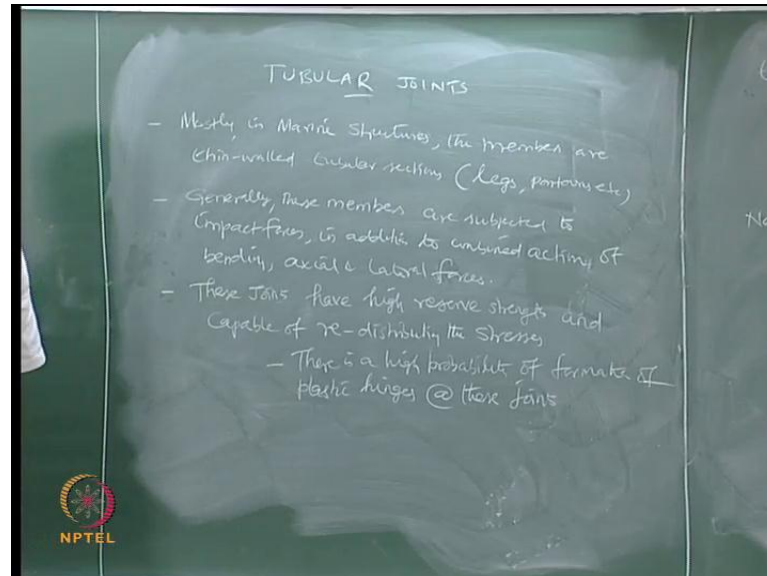 TUBULAR JOINTS
- Mostly, in Marine structures, the member are
thin-walled tubular sections (legs, pontoons etc)
- Generally, these member are subjected to
impact forces, in addition to combined action of
bending, axial & lateral forces.
- These Joints have high reserve strength and
Capable of re-distributing the stresses
- There is a high probability of formation of
plastic hinges @ these joints
No
NPTEL